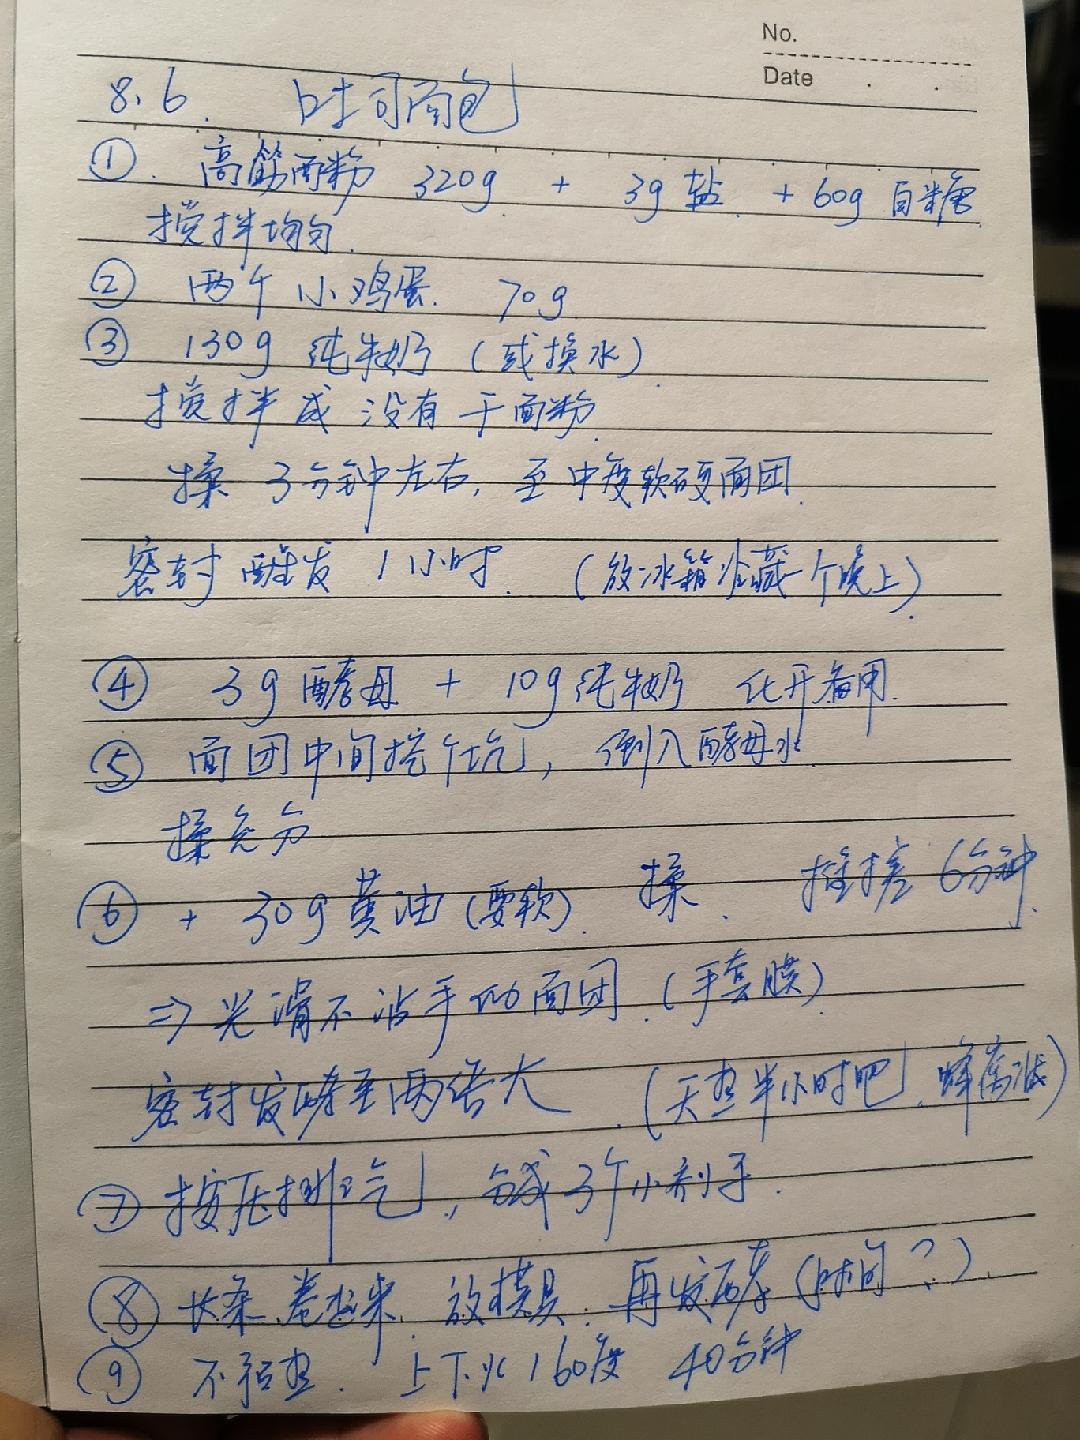 No.
Date
8.6. 吐司面包
① 高筋面粉 320g + 3g 盐 + 60g 白糖
搅拌均匀.
② 两个小鸡蛋. 70g
③ 130g 纯牛奶 (或换水)
搅拌成没有干面粉.
揉 3分钟左右, 至中度软硬面团.
密封醒发 1小时. (放冰箱冷藏一个晚上)
④ 3g 酵母 + 10g 纯牛奶 化开备用.
⑤ 面团中间挖个坑, 倒入酵母水
揉充分
⑥ + 30g 黄油 (要软). 揉. 推搓 6分钟.
⇒ 光滑不沾手的面团. (手套膜)
密封发酵至两倍大. (天热半小时吧, 蜂窝状)
⑦ 按压排气, 分成 3个小剂子.
⑧ 长条. 卷起来. 放模具. 再发酵 (时间?)
⑨ 不预热. 上下火 160度 40分钟